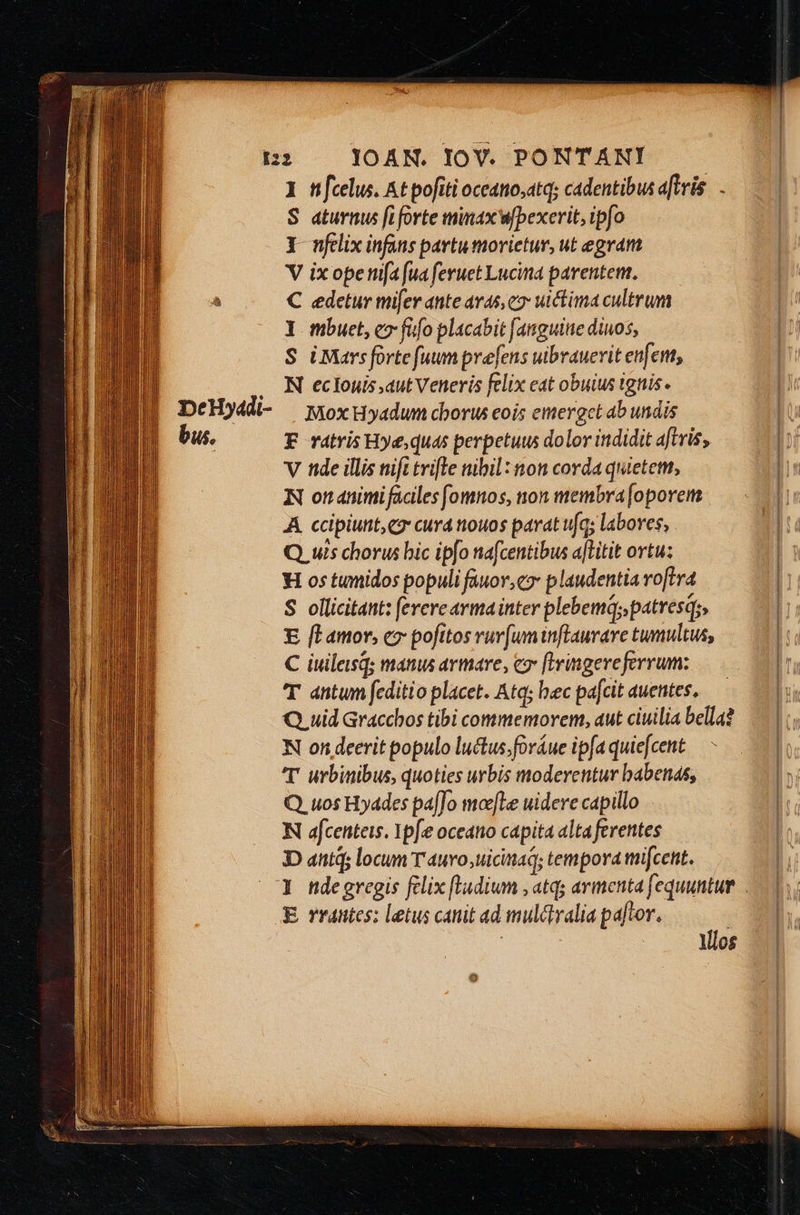 122 IOAN. IOV. PONTANI
I nſcelus. At poſiti oceano,atq; cadentibus aſtris
S aturnus ſi forte minax aſpexerit, ipſo
I nfelix infans partu morietur, ut ægram
V ix ope niſa ſua ſeruet Lucina parentem.
C ædetur miſer ante aras, & uictima cultrum
I mbuet, & fuſo placabit ſanguine diuos,
S i Mars forte ſuum præſens uibrauerit enſem,
N ec Iouis, aut Veneris felix eat obuius ignis.
DeHyadi-
bus.
Mox Hyadum chorus eois emerget ab undis
F ratris Hyæ, quas perpetuus dolor indidit aſtris,
V nde illis niſi triſte nihil: non corda quietem,
N on animi faciles ſomnos, non membra ſoporem
A ccipiunt, & cura nouos parat uſq; labores,
Q uis chorus hic ipſo naſcentibus aſtitit ortu:
H os tumidos populi fauor, & plaudentia roſtra
S ollicitant: ſerere arma inter plebemq;, patresq;,
E ſt amor, & poſitos rurſum inſtaurare tumultus,
C iuileisq; manus armare, & ſtringere ferrum:
T antum ſeditio placet. Atq; hæc paſcit auentes.
Q uid Gracchos tibi commemorem, aut ciuilia bella?
N on deerit populo luctus, foráue ipſa quieſcent
T urbinibus, quoties urbis moderentur habenas,
Q uos Hyades paſſo mœſtæ uidere capillo
N aſcenteis. Ipſæ oceano capita alta ferentes
D antq; locum Tauro, uicinaq; tempora miſcent.
I nde gregis felix ſtudium, atq; armenta ſequuntur
E rrantes: lætus canit ad mulctralia paſtor.
Illos